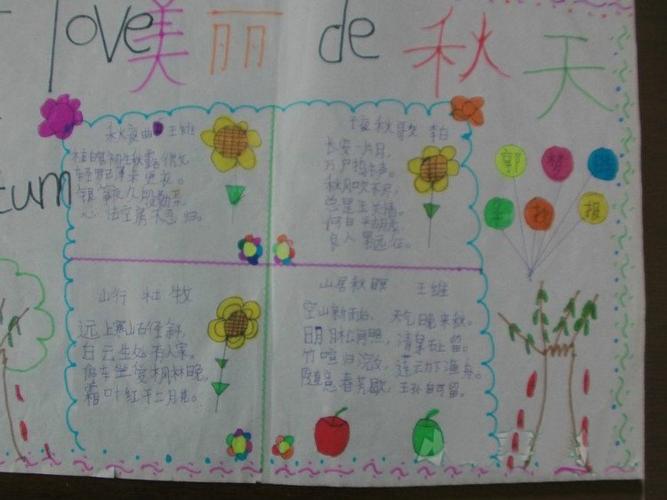 love美丽 de 秋天
tum
秋夜曲 王维
桂魄初生秋露微,
轻罗已薄未更衣。
银筝夜久殷勤弄,
心怯空房不忍归。
子夜秋歌 李白
长安一片月,
万户捣衣声。
秋风吹不尽,
总是玉关情。
何日平胡虏,
良人罢远征。
郭 梦
手 抄 报
山行 杜牧
远上寒山石径斜,
白云生处有人家。
停车坐爱枫林晚,
霜叶红于二月花。
山居秋暝 王维
空山新雨后, 天气晚来秋。
明月松间照, 清泉石上留。
竹喧归浣女, 莲云下渔舟。
随意春芳歇, 王孙自可留。